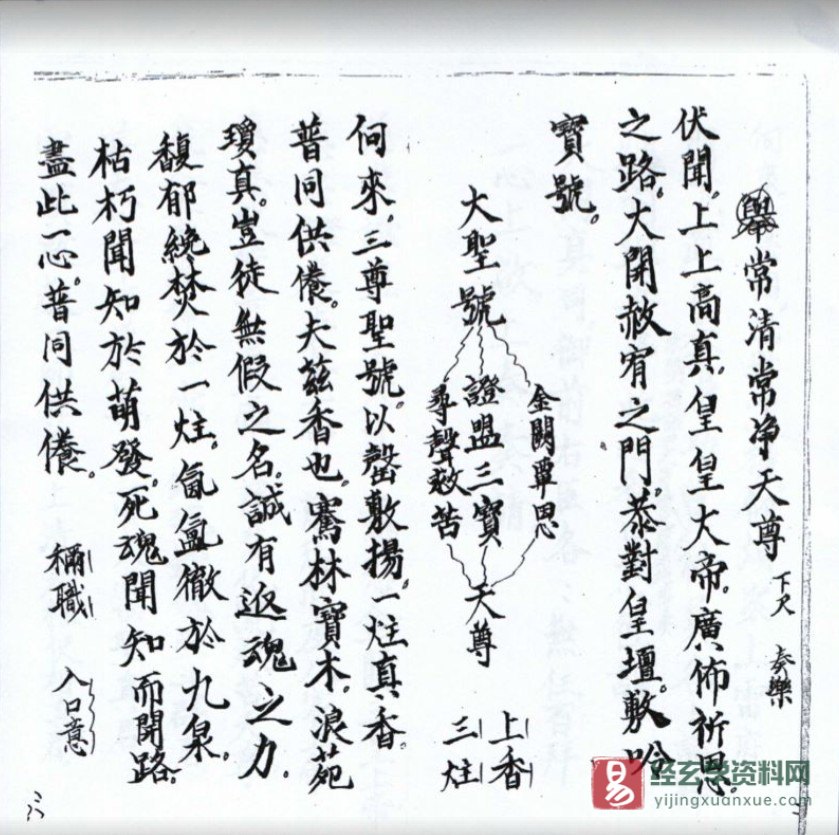 舉常清常净天尊 下尺 奏樂
伏聞。上上高真。皇皇大帝。廣佈祈恩。
之路。大開赦宥之門。恭對皇壇。敷吟
寶號。
大聖號
金闕覃恩
證盟三寶
尋聲救苦
天尊
上香
三炷
向來。三尊聖號。以罄敷揚。一炷真香。
普同供養。夫茲香也。騫林寶木。浪苑
瓊真。豈徒無假之名。誠有返魂之力。
馥郁纔焚於一炷。氤氳徹於九泉。
枯朽聞知於萌發。死魂聞知而開路。
盡此一心。普同供養。 稱職 入口意
易
经玄学资料网
yijingxuanxue.com